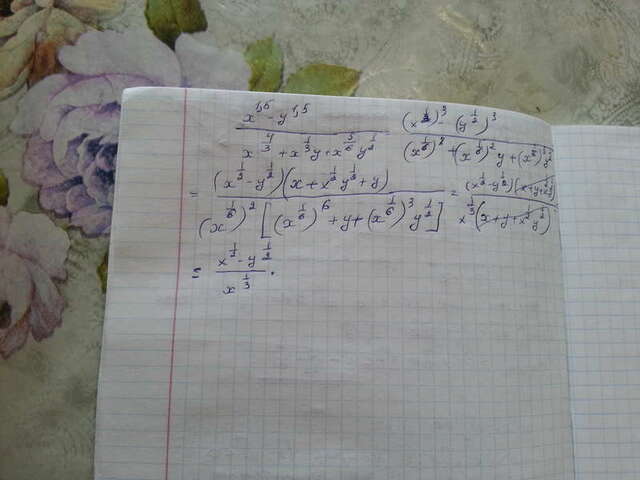 (x^{1,5} - y^{1,5}) / (x^{4/3} + x^{1/3}y + x^{5/6}y^{1/2}) = ((x^{1/2})^3 - (y^{1/2})^3) / ((x^{1/6})^8 + (x^{1/6})^2 y + (x^{1/6})^5 y^{1/2})
= (x^{1/2} - y^{1/2})(x + x^{1/2}y^{1/2} + y) / ((x^{1/6})^2 [(x^{1/6})^6 + y + (x^{1/6})^3 y^{1/2}]) = (x^{1/2} - y^{1/2})(x + y + x^{1/2}y^{1/2}) / (x^{1/3}(x + y + x^{1/2}y^{1/2}))
= (x^{1/2} - y^{1/2}) / x^{1/3}.